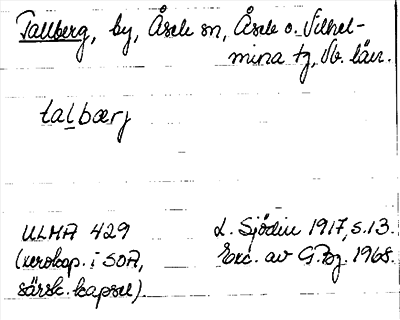 Tallberg, by, Åsele sn, Åsele o. Vilhel-
mina tg, Vb. län.
talbærj
ULMA 429
(xerokop. i SOA,
särsk. kapsel)
L. Sjödin 1917, s. 13.
Exc. av G.Bg. 1968.